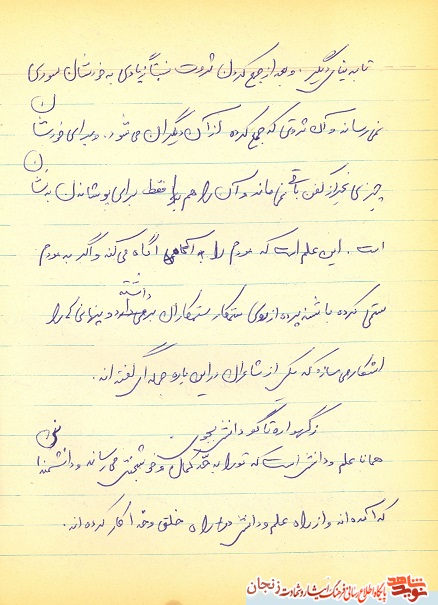 تا به نیای دیگر. و بعد از جمع کردن ثروت نسبتاً زیادی به خودشان سودی
نمی رساند و آن ثروتی که جمع کرده از آن دیگران می شود. و برای خودشان
چیزی بجز از کفن باقی نمی ماند و آن را هم فقط برای پوشاندن بدنشان
است. این علم است که مردم را به آگاهی آگاه می کند و اگر به مردم
ستمی کرده باشند پرده از روی ستمکار ستمکاران برداشته و پنهانی ها را
آشکار می سازد که یکی از شاعران در این باره جمله ای گفته اند.
ز گهواره تا گور دانش بجوی.
همانا علم و دانش است که تو را به حد کمال و خوشبختی می رساند و دانشمندانی
که آمده اند و از راه علم و دانش در راه خلق و خدا کار کرده اند.
نوید شاهد
پایگاه اطلاع رسانی فرهنگ ایثار و شهادت زنجان